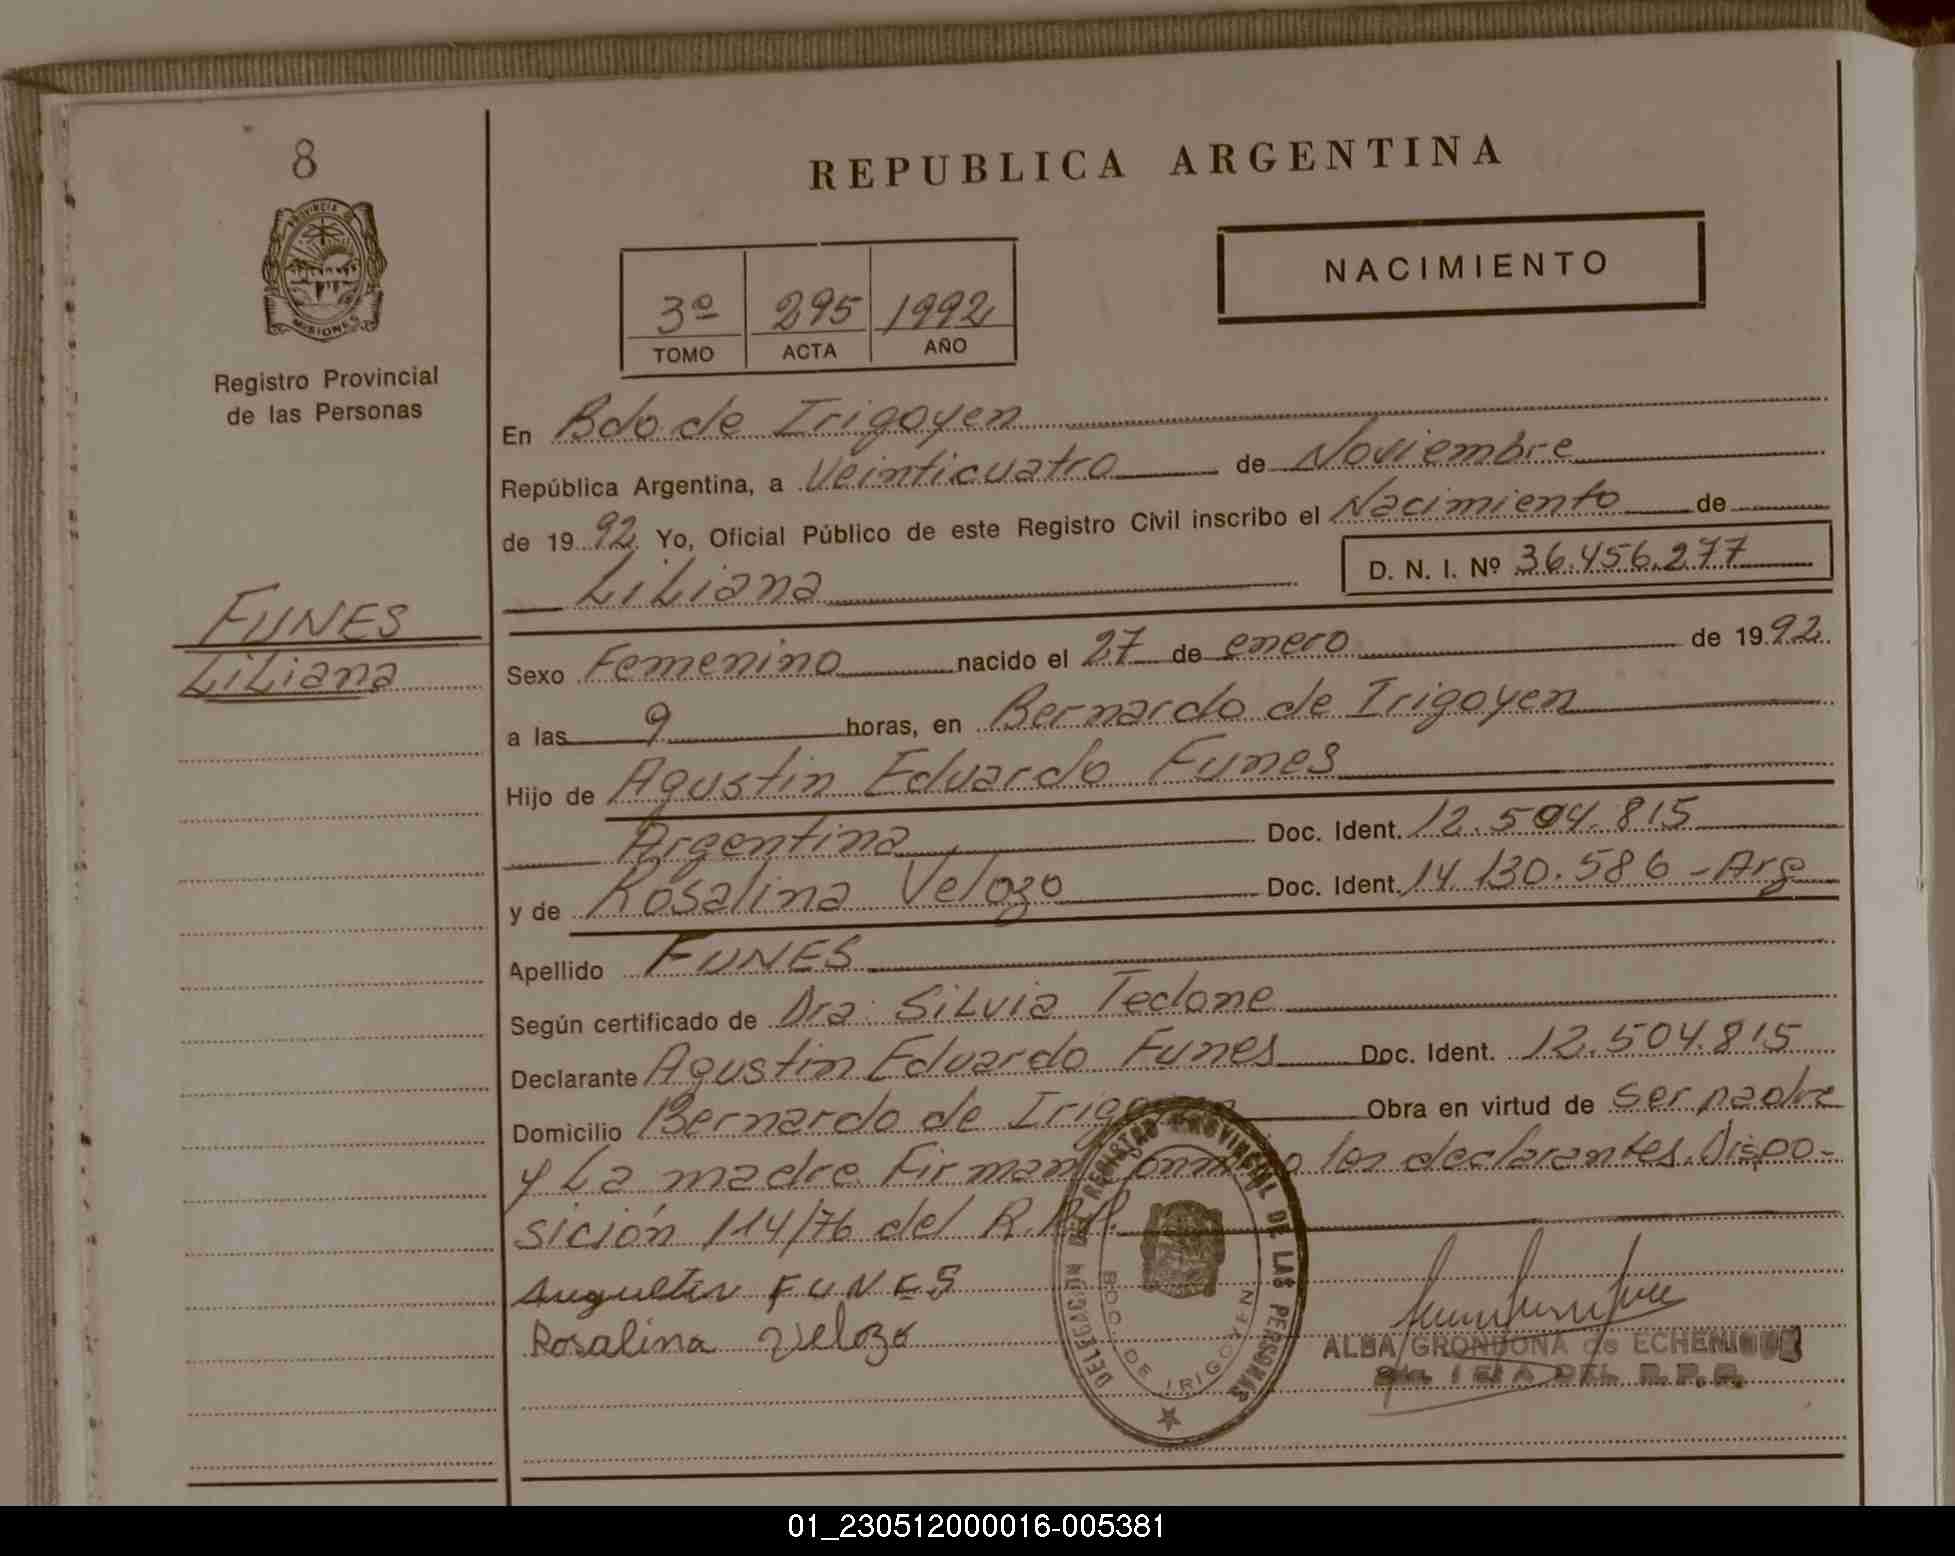 8
REPUBLICA ARGENTINA
PROVINCIA DE
MISIONES
NACIMIENTO
3º 295 1992
TOMO ACTA AÑO
Registro Provincial
de las Personas
En Bdo. de Irigoyen
República Argentina, a Veinticuatro de Noviembre
de 1992. Yo, Oficial Público de este Registro Civil inscribo el Nacimiento de
Liliana D. N. I. Nº 36.456.277
FUNES
Liliana
Sexo Femenino nacido el 27 de enero de 1992.
a las 9 horas, en Bernardo de Irigoyen
Hijo de Agustin Eduardo Funes
Argentina Doc. Ident. 12.504.815
y de Rosalina Velozo Doc. Ident. 14.130.586 - Arg
Apellido FUNES
Según certificado de Dra. Silvia Tedone
Declarante Agustin Eduardo Funes Doc. Ident. 12.504.815
Domicilio Bernardo de Irigoyen Obra en virtud de ser padre
y La madre Firman como los declarantes. Dispo-
sición 114/76 del R.P.P.
FUNES
Rosalina Velozo
DELEGACION DEL REGISTRO PROVINCIAL DE LAS PERSONAS
BDO. DE IRIGOYEN
ALBA GRONDONA de ECHENIQUE
DEL R.P.P.
01_230512000016-005381